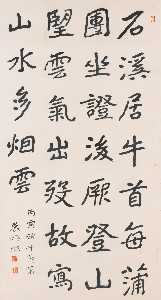 石溪居牛首每蒲
團坐證後厥登山
望雲氣出沒故寫
山水多烟雲
丙寅